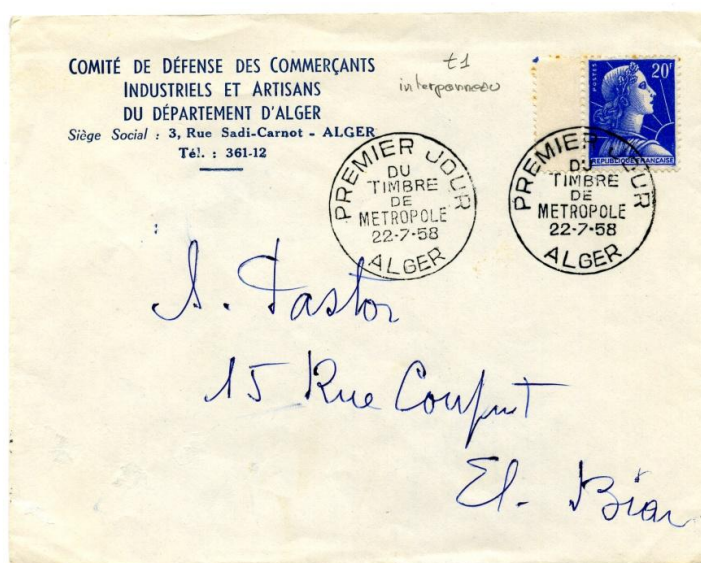 COMITÉ DE DÉFENSE DES COMMERÇANTS
INDUSTRIELS ET ARTISANS
DU DÉPARTEMENT D'ALGER
Siège Social : 3, Rue Sadi-Carnot - ALGER
Tél. : 361-12
t1
interpanneau
POSTES
20F
REPUBLIQUE FRANÇAISE
PREMIER JOUR
DU
TIMBRE
DE
METROPOLE
22-7-58
ALGER
PREMIER JOUR
DU
TIMBRE
DE
METROPOLE
22-7-58
ALGER
A. Pastor
15 Rue
El. Biar